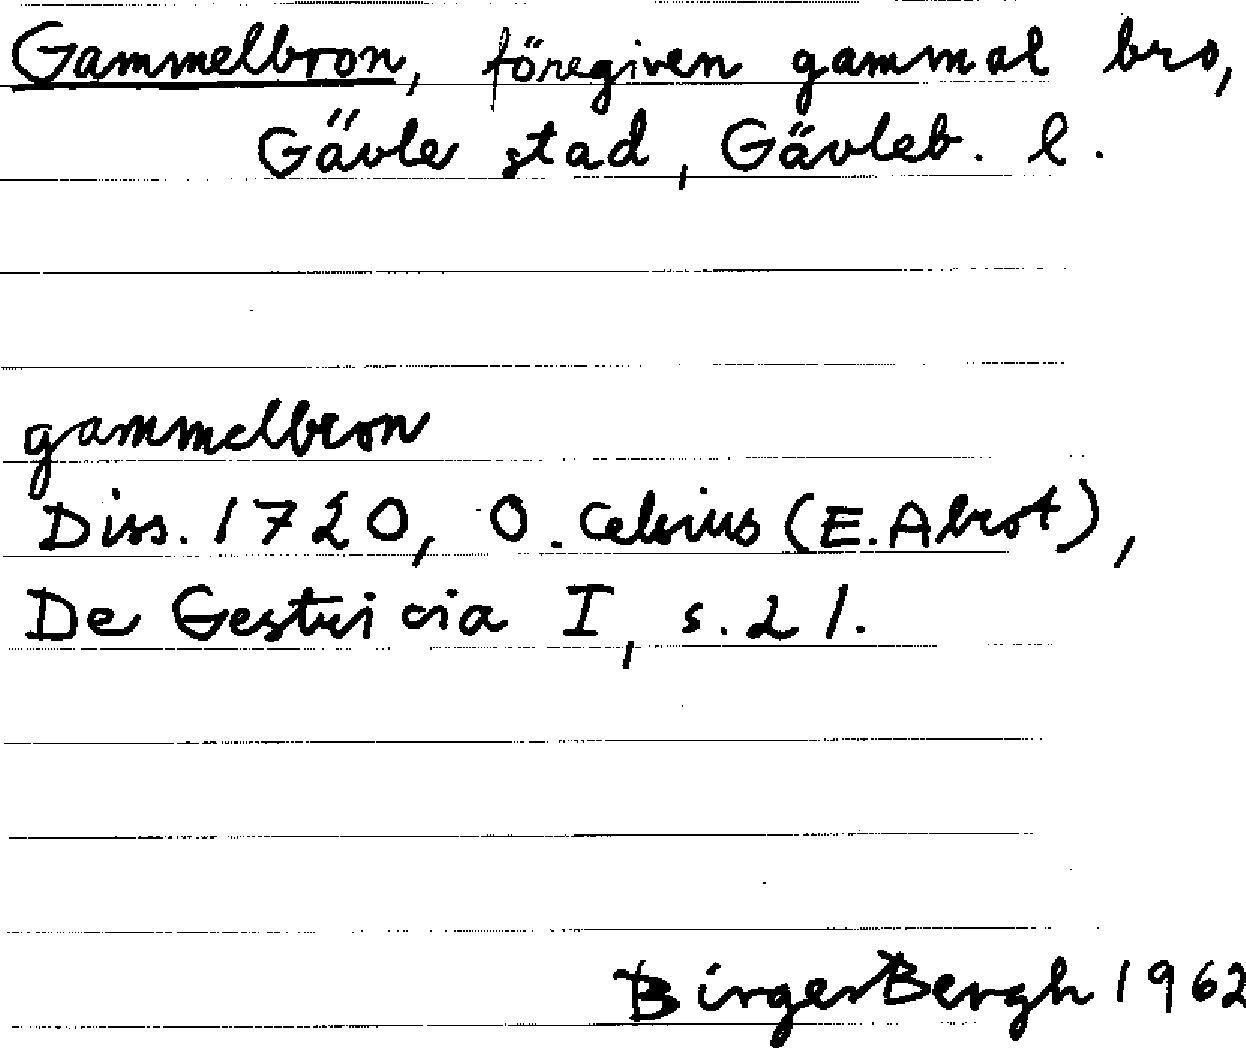 Gammelbron, föregiven gammal bro,
Gävle stad, Gävleb. l.
gammelbron
Diss. 1720, O. Celsius (E. Abrot),
De Gestricia I, s. 21.
Birger Bergh 1962